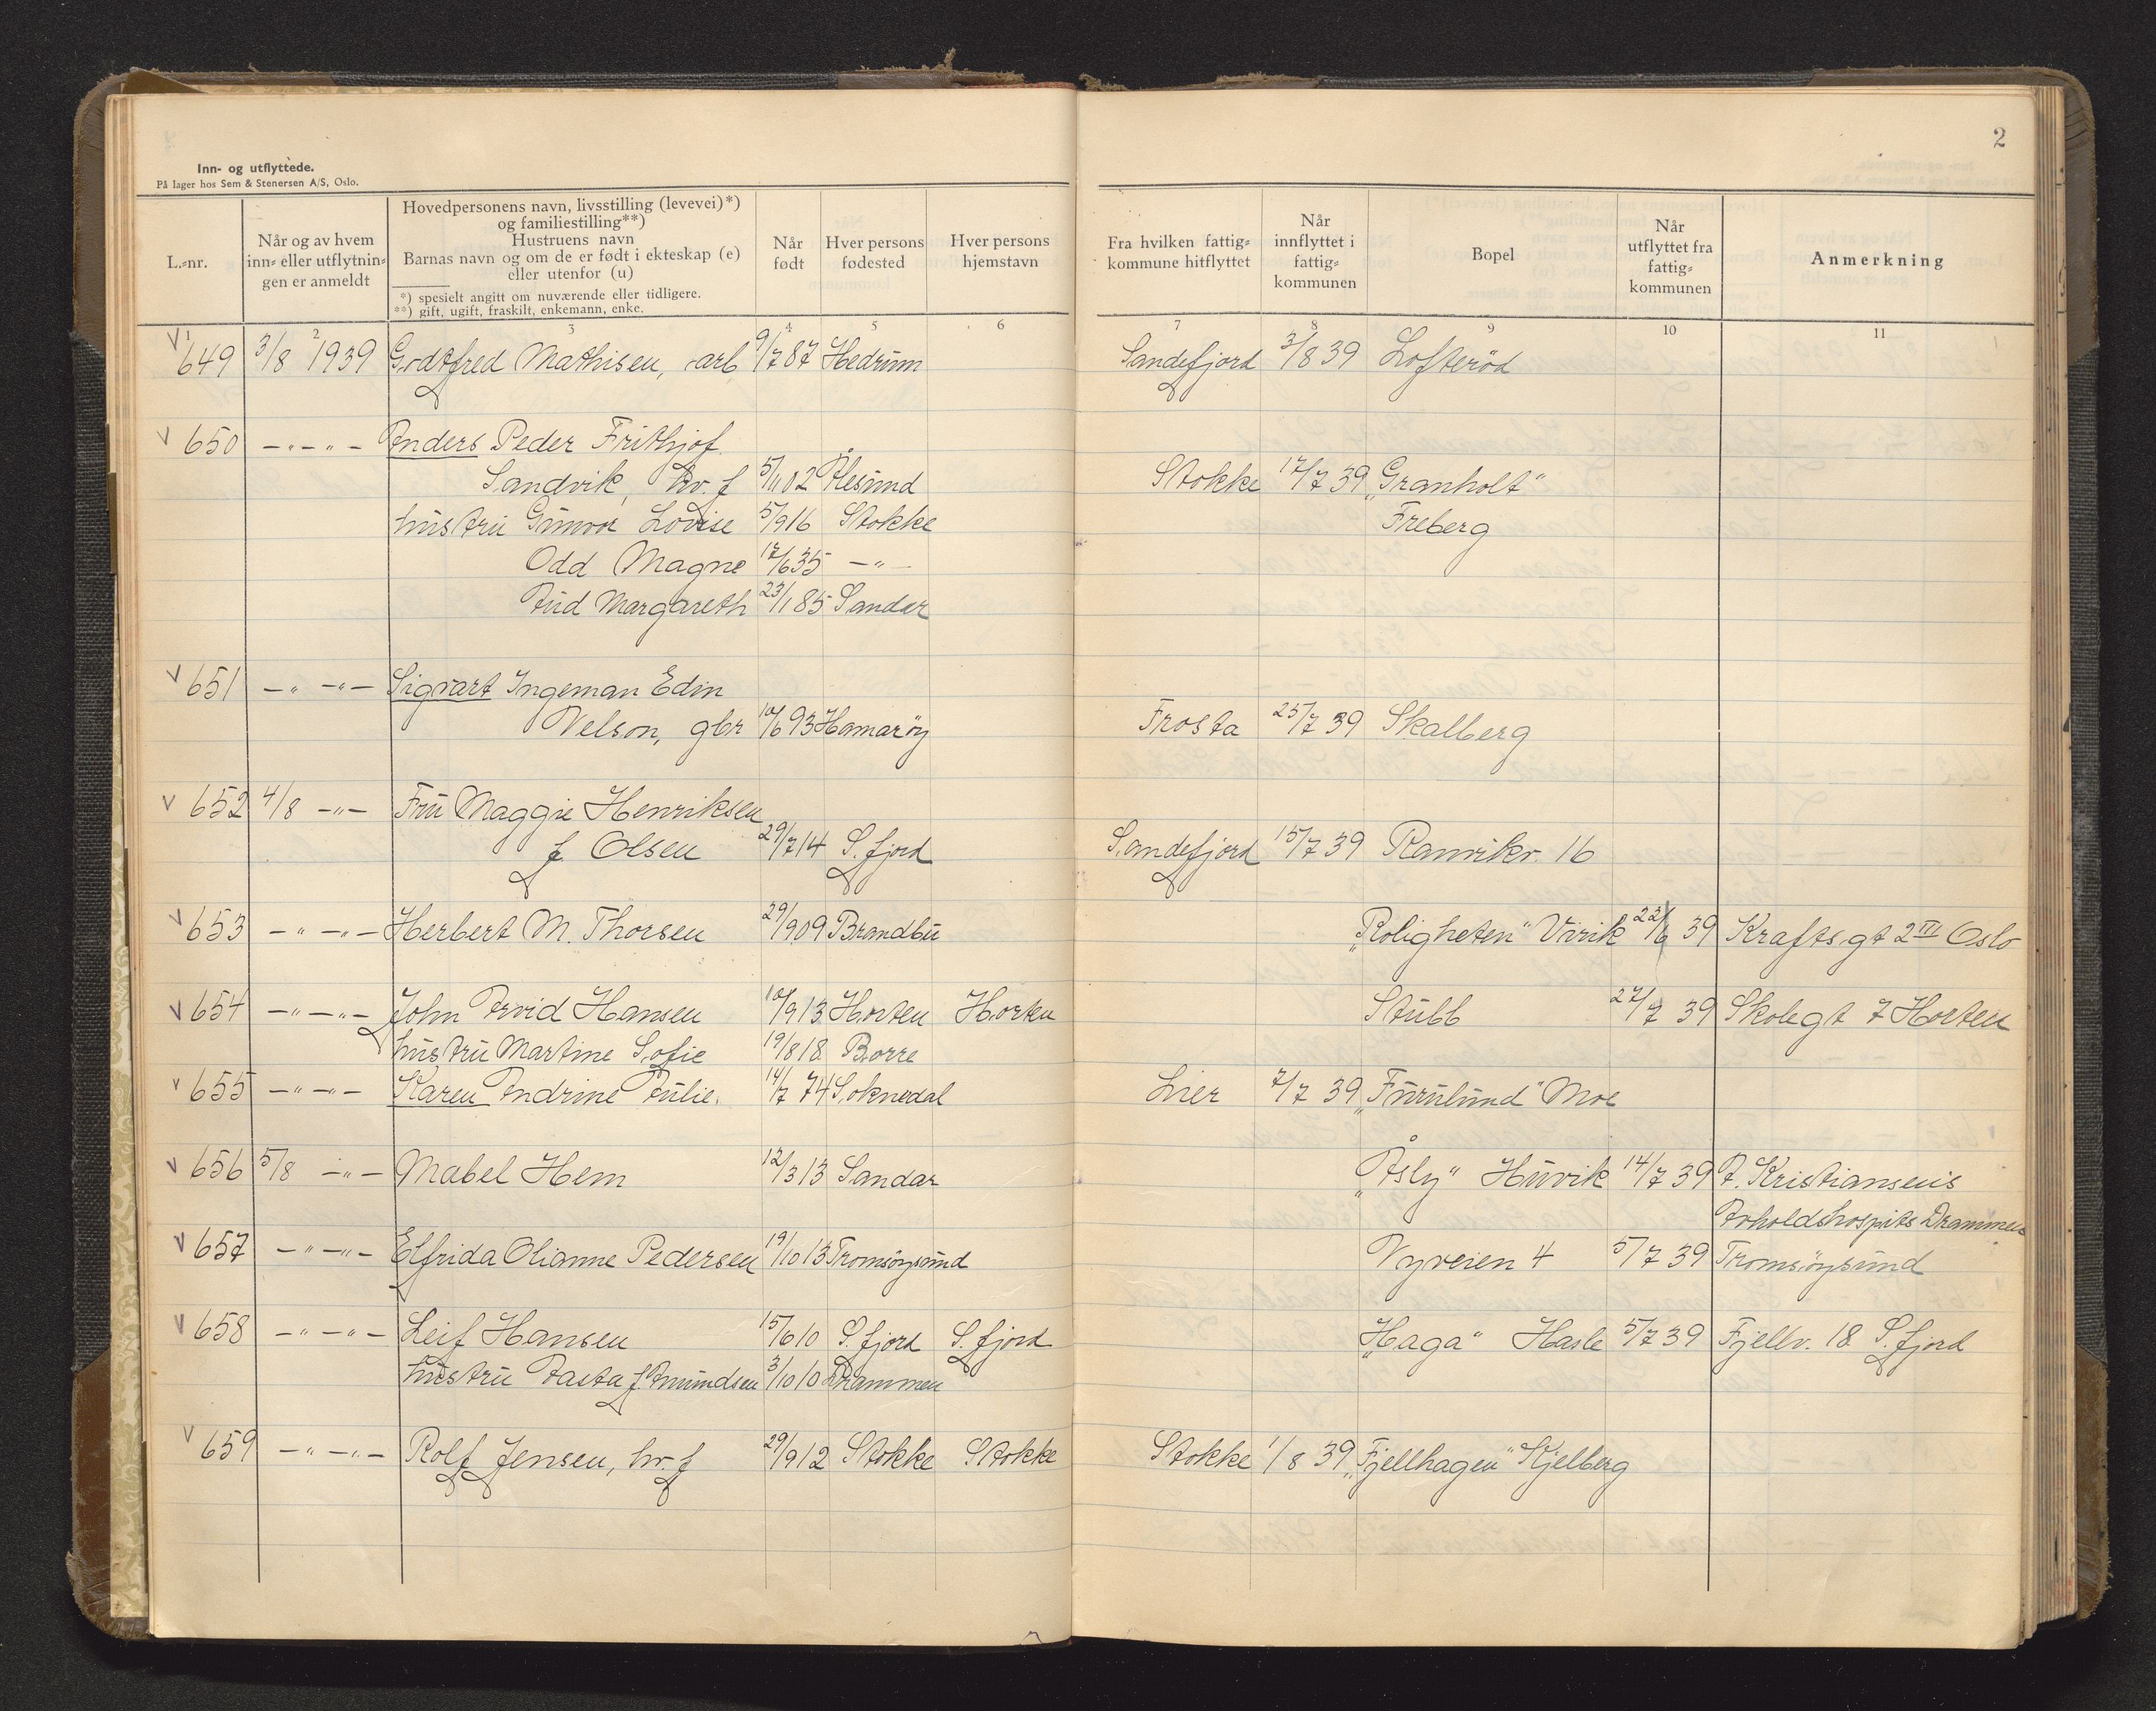 2
Inn- og utflyttede.
På lager hos Sem & Stenersen A/S, Oslo.
L.-nr.
Når og av hvem inn- eller utflytningen er anmeldt
Hovedpersonens navn, livsstilling (levevei)*) og familiestilling**)
Hustruens navn
Barnas navn og om de er født i ekteskap (e) eller utenfor (u)
*) spesielt angitt om nuværende eller tidligere.
**) gift, ugift, fraskilt, enkemann, enke.
Når født
Hver persons fødested
Hver persons hjemstavn
Fra hvilken fattigkommune hitflyttet
Når innflyttet i fattigkommunen
Bopel
Når utflyttet fra fattigkommunen
Anmerkning
1 2 3 4 5 6 7 8 9 10 11
V 649 3/8 1939 Godtfred Mathisen, arb 9/7 87 Hedrum Sandefjord 3/8 39 Lofterød
V 650 -"-"- Anders Peder Frithjof
Sandvik, hv. f 5/11 02 Ålesund Stokke 17/7 39 „Granholt"
hustru Gunvor Lovise 5/9 16 Stokke Freberg
Odd Magne 17/6 35 -"-
Aud Margareth 23/1 85 Sandar
V 651 -" -"- Sigvart Ingeman Edin
Nelson, gbr 10/6 93 Hamarøy Frosta 25/7 39 Skalberg
V 652 4/8 -"- Fru Maggie Henriksen
f. Olsen 29/7 14 S. fjord Sandefjord 15/7 39 Ranvikv. 16
V 653 -" -"- Herbert M. Thorsen 29/9 09 Brandbu „Roligheten" Virik 22/6 39 Krafts gt 2 III Oslo
V 654 -" -"- John Arvid Hansen 10/9 13 Horten Horten Stubb 27/7 39 Skolegt 7 Horten
hustru Martine Sofie 19/8 18 Borre
V 655 -" -"- Karen Andrine Aulie. 14/7 74 Soknedal Lier 7/7 39 „Furulund" Moe
V 656 5/8 -"- Mabel Hem 12/3 13 Sandar „Åsly" Huvik 14/7 39 A. Kristiansens
Avholdshospits Drammen
V 657 -" -"- Elfrida Olianne Pedersen 19/10 13 Tromsøysund Nyveien 4 5/7 39 Tromsøysund
V 658 -" -"- Leif Hansen 15/6 10 S. fjord S. fjord „Haga" Hasle 5/7 39 Fjellv. 18 S. fjord
hustru Aasta f. Amundsen 3/10 10 Drammen
V 659 -" -"- Rolf Jensen, hv. f 29/9 12 Stokke Stokke Stokke 1/8 39 „Fjellhagen" Kjelberg